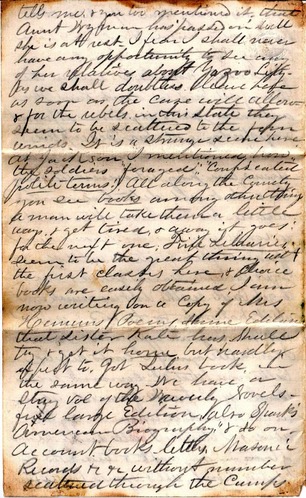 tells me, & you've mentioned it, that
Aunt Wyman has passed on well
she is at rest. I fear shall never
have any opportunity to see any
of her relatives about Yazoo City
As we shall doubtless leave here
as soon as the case will allow
& for the rebels in this State they
seem to be scattered to the four
winds. It is a strange
at Jackson, I mentioned how
the soldiers foraged "Confiscated
polite terms" All along the County
you see books among
a man will take them a little
way, & get tired, & away it goes
for the next one, Fine Libraries
seem to be the great thing with
the first classes here, & choice
books are easily obtained I am
now writing on a Copy of Mrs
Hemans Poems, same Edition
that sister has, shall
try & get it home but hardly
expect to. Got book in
the same way. We have on
vol of the Waverly Novels
fine large Edition, also Sparks'
"American Biography" & so on
Account books letters, Masonic
Records &c &c without number
scattered through the Camp